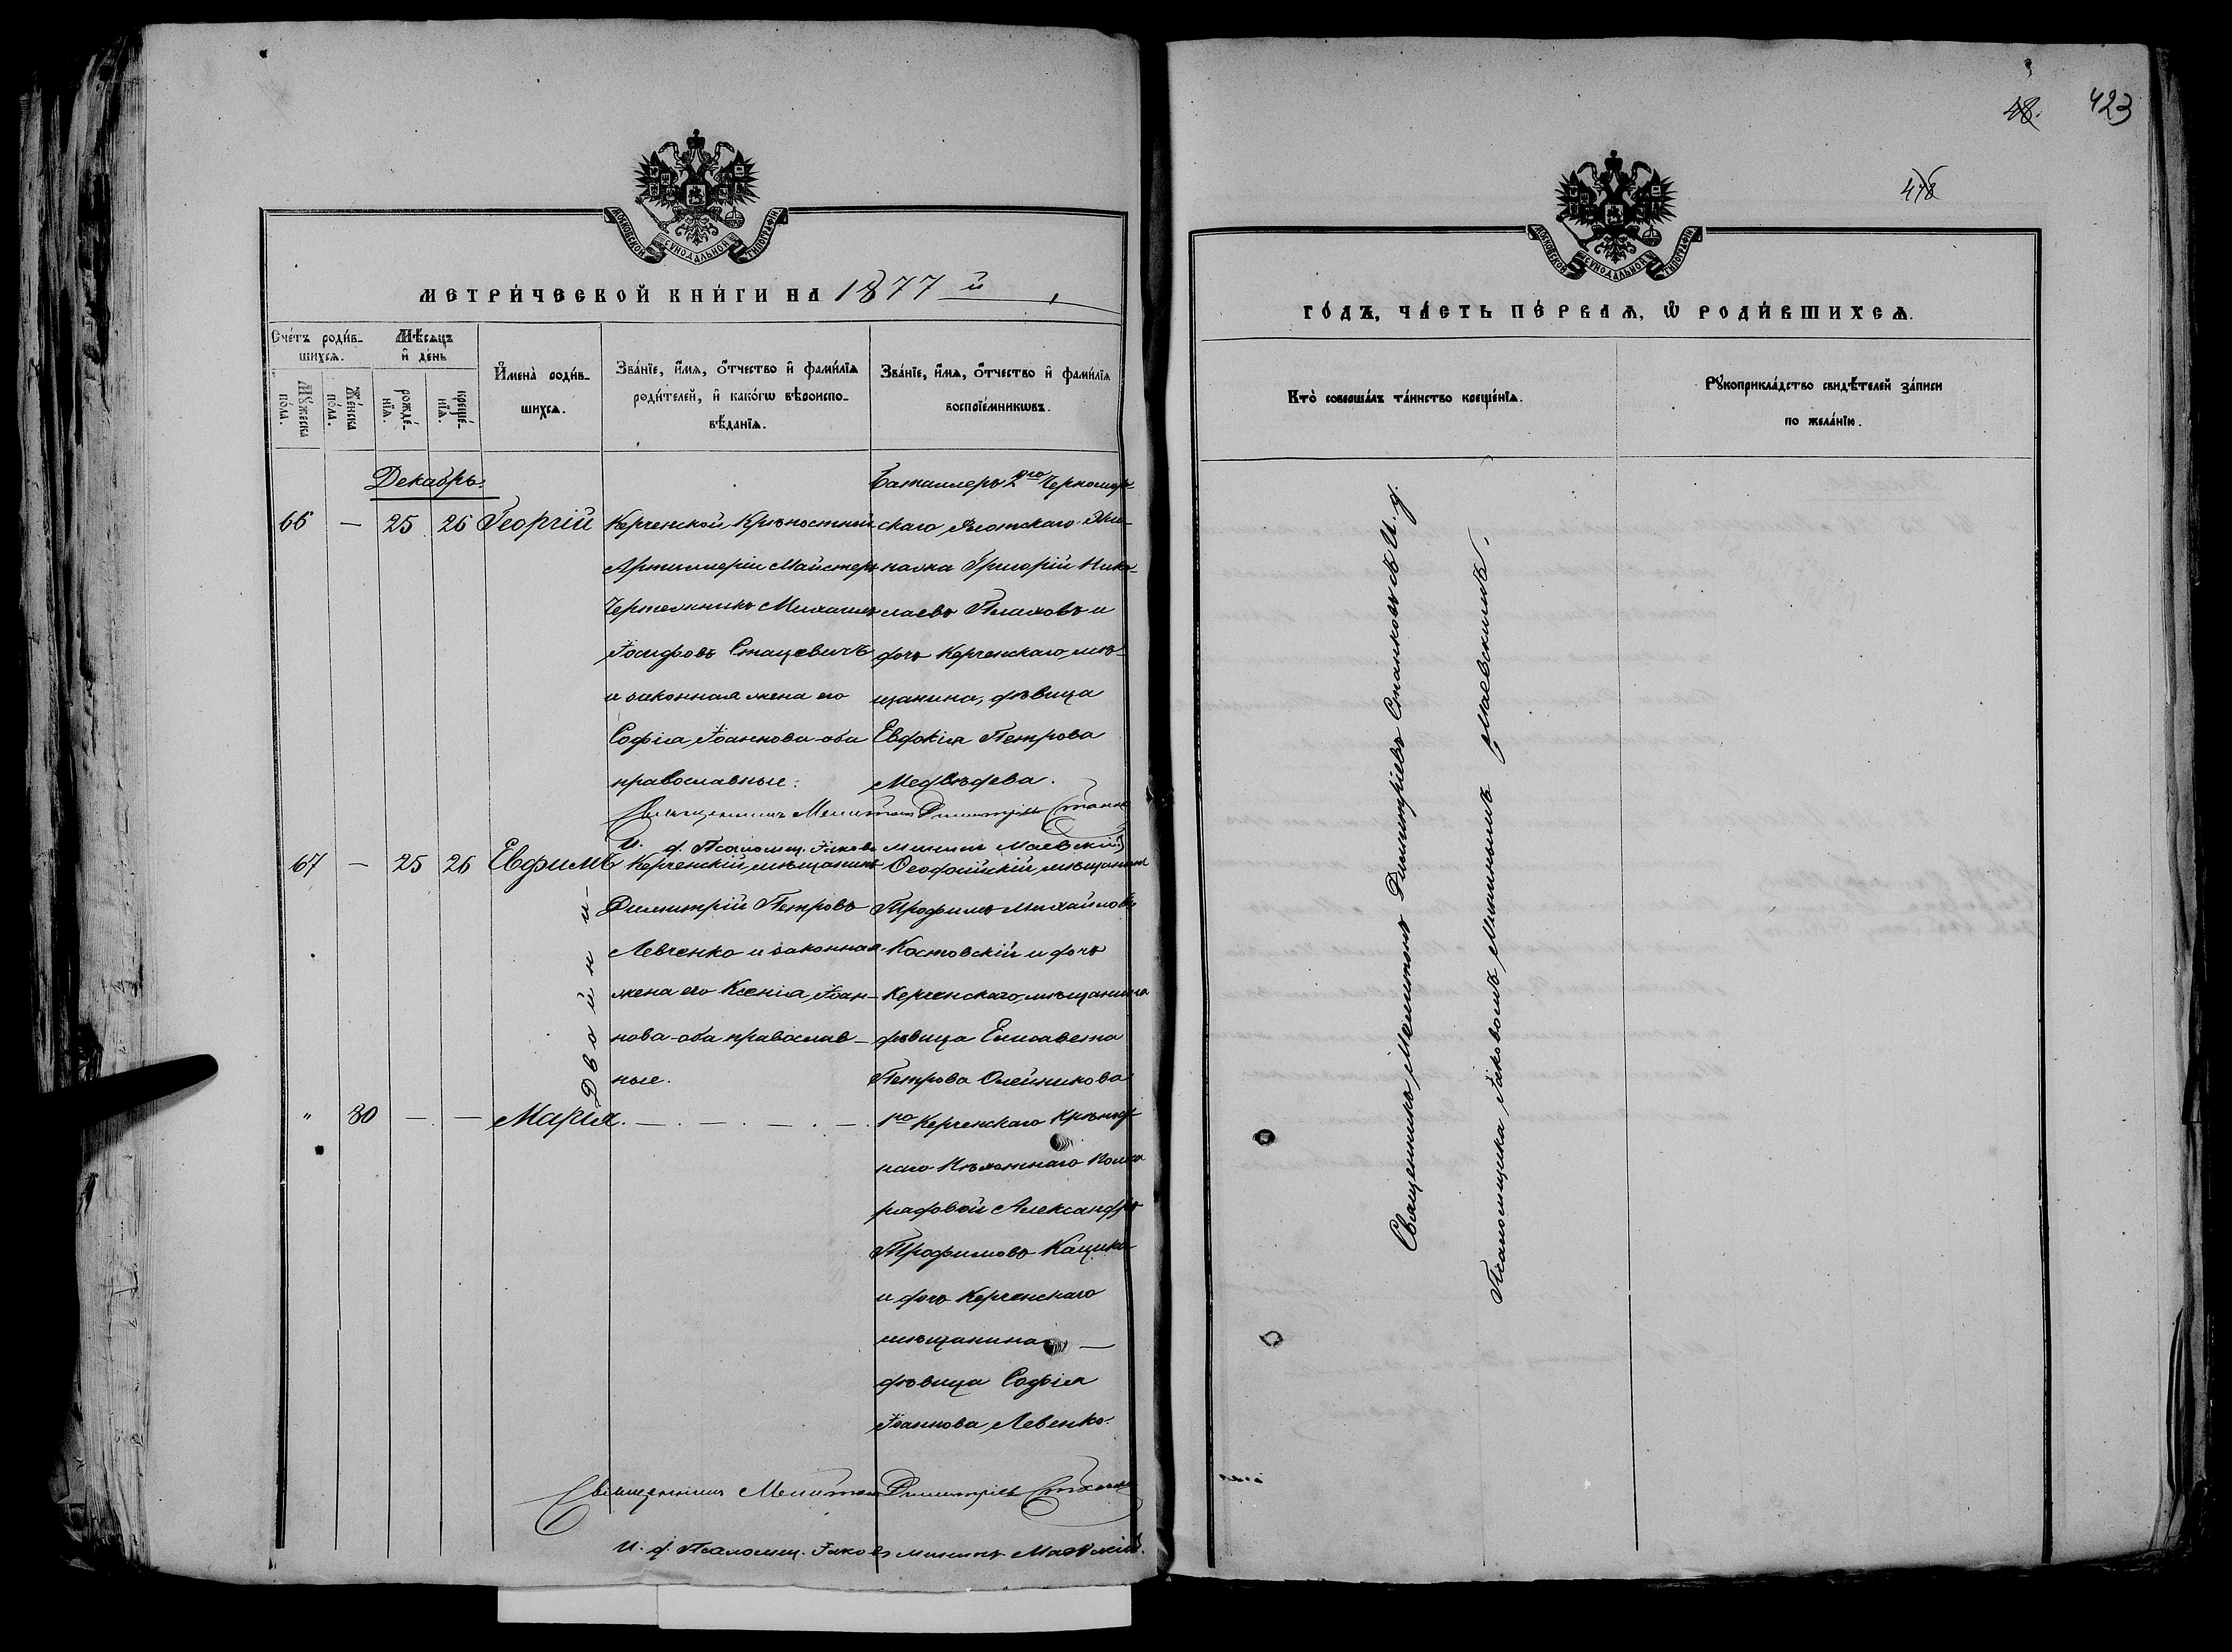 48. 423
418
МОСКОВСКОЙ СѴНОДАЛЬНОЙ ТИПОГРАФІИ
МОСКОВСКОЙ СѴНОДАЛЬНОЙ ТИПОГРАФІИ
МЕТРИ́ЧЕСКОЙ КНИ́ГИ НА 1877 й
ГО́ДЪ, ЧА́СТЬ ПЕ́РВАѦ, Ѽ РОДИ́ВШИХСѦ.
Сче́тъ роди́в-
шихсѧ.
Мꙋ́жеска
по́ла.
Же́нска
по́ла.
Мѣ́сѧцъ
и҆ де́нь
рожде́-
нїѧ.
креще́-
нїѧ.
И҆мена̀ роди́в-
шихсѧ.
Зва́нїе, и҆́мѧ, ѻ҆́тчество и҆ фами́лїѧ
роди́телей, и҆ како́гѡ вѣроиспо-
вѣ́данїѧ.
Зва́нїе, и҆́мѧ, ѻ҆́тчество и҆ фами́лїѧ
воспрїе́мникѡвъ.
Кто̀ соверша́лъ та́инство креще́нїѧ.
Рꙋкоприкла́дство свидѣ́телей за́писи
по жела́нїю.
Декабрь.
66 — 25 26 Георгій
Керченской Крѣпостной
Артиллеріи Майстеръ
Чертежникъ Михаилъ
Іосифовъ Стацевичъ
и законная жена его
Софія Іоаннова оба
православные:
Баталлеръ 2го Черномор
скаго Флотскаго Эки-
пажа Григорій Нико-
лаевъ Плаховъ и
дочь Керченскаго мѣ-
щанина, дѣвица
Евдокія Петрова
Медвѣдева.
Священникъ Мелитонъ Димитріевъ Станк
И. д. Псаломщ. Іаковъ Мининъ Маевскій
67 — 25 26 Евфимъ
Двойни-
Керченскій мѣщанинъ
Димитрій Петровъ
Левченко и законная
жена его Ксенія Іоан-
нова-оба православ-
ные.
Ѳеодосійскій мѣщанинъ
Трофимъ Михайловъ
Костовскій и дочь
Керченскаго мѣщанина
дѣвица Елисавета
Петрова Олейникова
" 30 — — Марія. — . — . — . —
1го Керченскаго Крѣпост
наго Пѣхотнаго Полка
рядовой Александръ
Трофимовъ Кацика
и дочь Керченскаго
мѣщанина —
дѣвица Софія
Іоаннова Левенко.
Священникъ Мелитонъ Димитріевъ
И. д. Псаломщ. Іаковъ Мининъ Маевскій.
Священникъ Мелитонъ Димитріевъ Станковъ съ И. д.
Псаломщика Іаковомъ Мининымъ Маевскимъ.